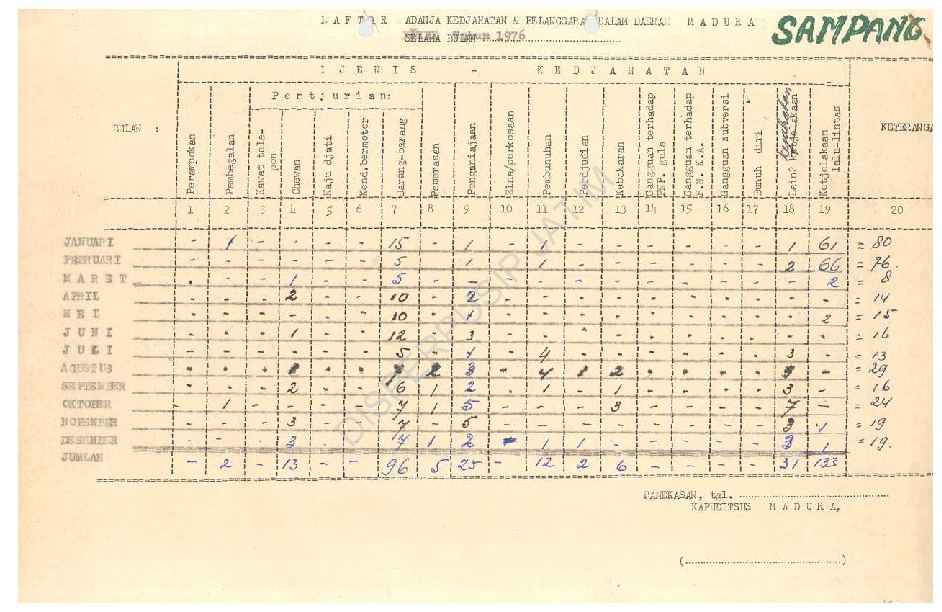 D A F T A R ADANJA KEDJAHATAN & PELANGGARAN DALAM DAERAH M A D U R A
SELAMA BULAN Tahun 1976
SAMPANG
DJENIS - K E D J A H A T A N
P e n t j u r i a n :
BULAN :
Perampokan
Pembegalan
Kawat tele-
pon
Chewan
Kaju djati
Kend.bermotor
Barang-barang
Pemerasan
Penganiajaan
Zina/perkosaan
Pembunuhan
Perdjudian
Kebakaran
Gangguan terhadap
PNP. gula
Gangguan terhadap
P.N.K.A.
Gangguan subversi
Bunuh diri
Lain2 kejahatan
Ketjelakaan
lalu-lintas
KETERANGA
1 2 3 4 5 6 7 8 9 10 11 12 13 14 15 16 17 18 19 20
JANUARI - 1 - - - - 15 - 1 - 1 - - - - - - 1 61 = 80
PEBRUARI - - - - - - 5 - 1 - 1 - - - - - - 2 66 = 76.
M A R E T - - - 1 - - 5 - - - - - - - - - - - 2 = 8
APRIL - - - 2 - - 10 - 2 - - - - - - - - - - = 14
M E I - - - - - - 10 - 1 - - - - - - - - - 2 = 15
J U N I - - - 1 - - 12 - 3 - - - - - - - - - - = 16
J U L I - - - - - - 5 - 1 - 4 - - - - - - 3 - = 13
AGUSTUS - - - - - 2 3 - 4 1 2 - - - - - = 29
SEPTEMBER - - - 2 - - 6 1 2 - 1 - 1 - - - - 3 - = 16
OKTOBER - 1 - - - - 7 1 5 - - - 3 - - - - 7 - = 24
NOPEMBER - - - 3 - - 7 - 5 - - - - - - - - 3 1 = 19
DESEMBER - - - 3 - - 7 1 2 - 1 1 - - - - - 3 1 = 19.
JUMLAH - 2 - 13 - - 96 5 25 - 12 2 6 - - - - 31 133
PAMEKASAN, tgl.
KAPUBITSUS M A D U R A,
(....................................)
DISPERPUSIP JATIM